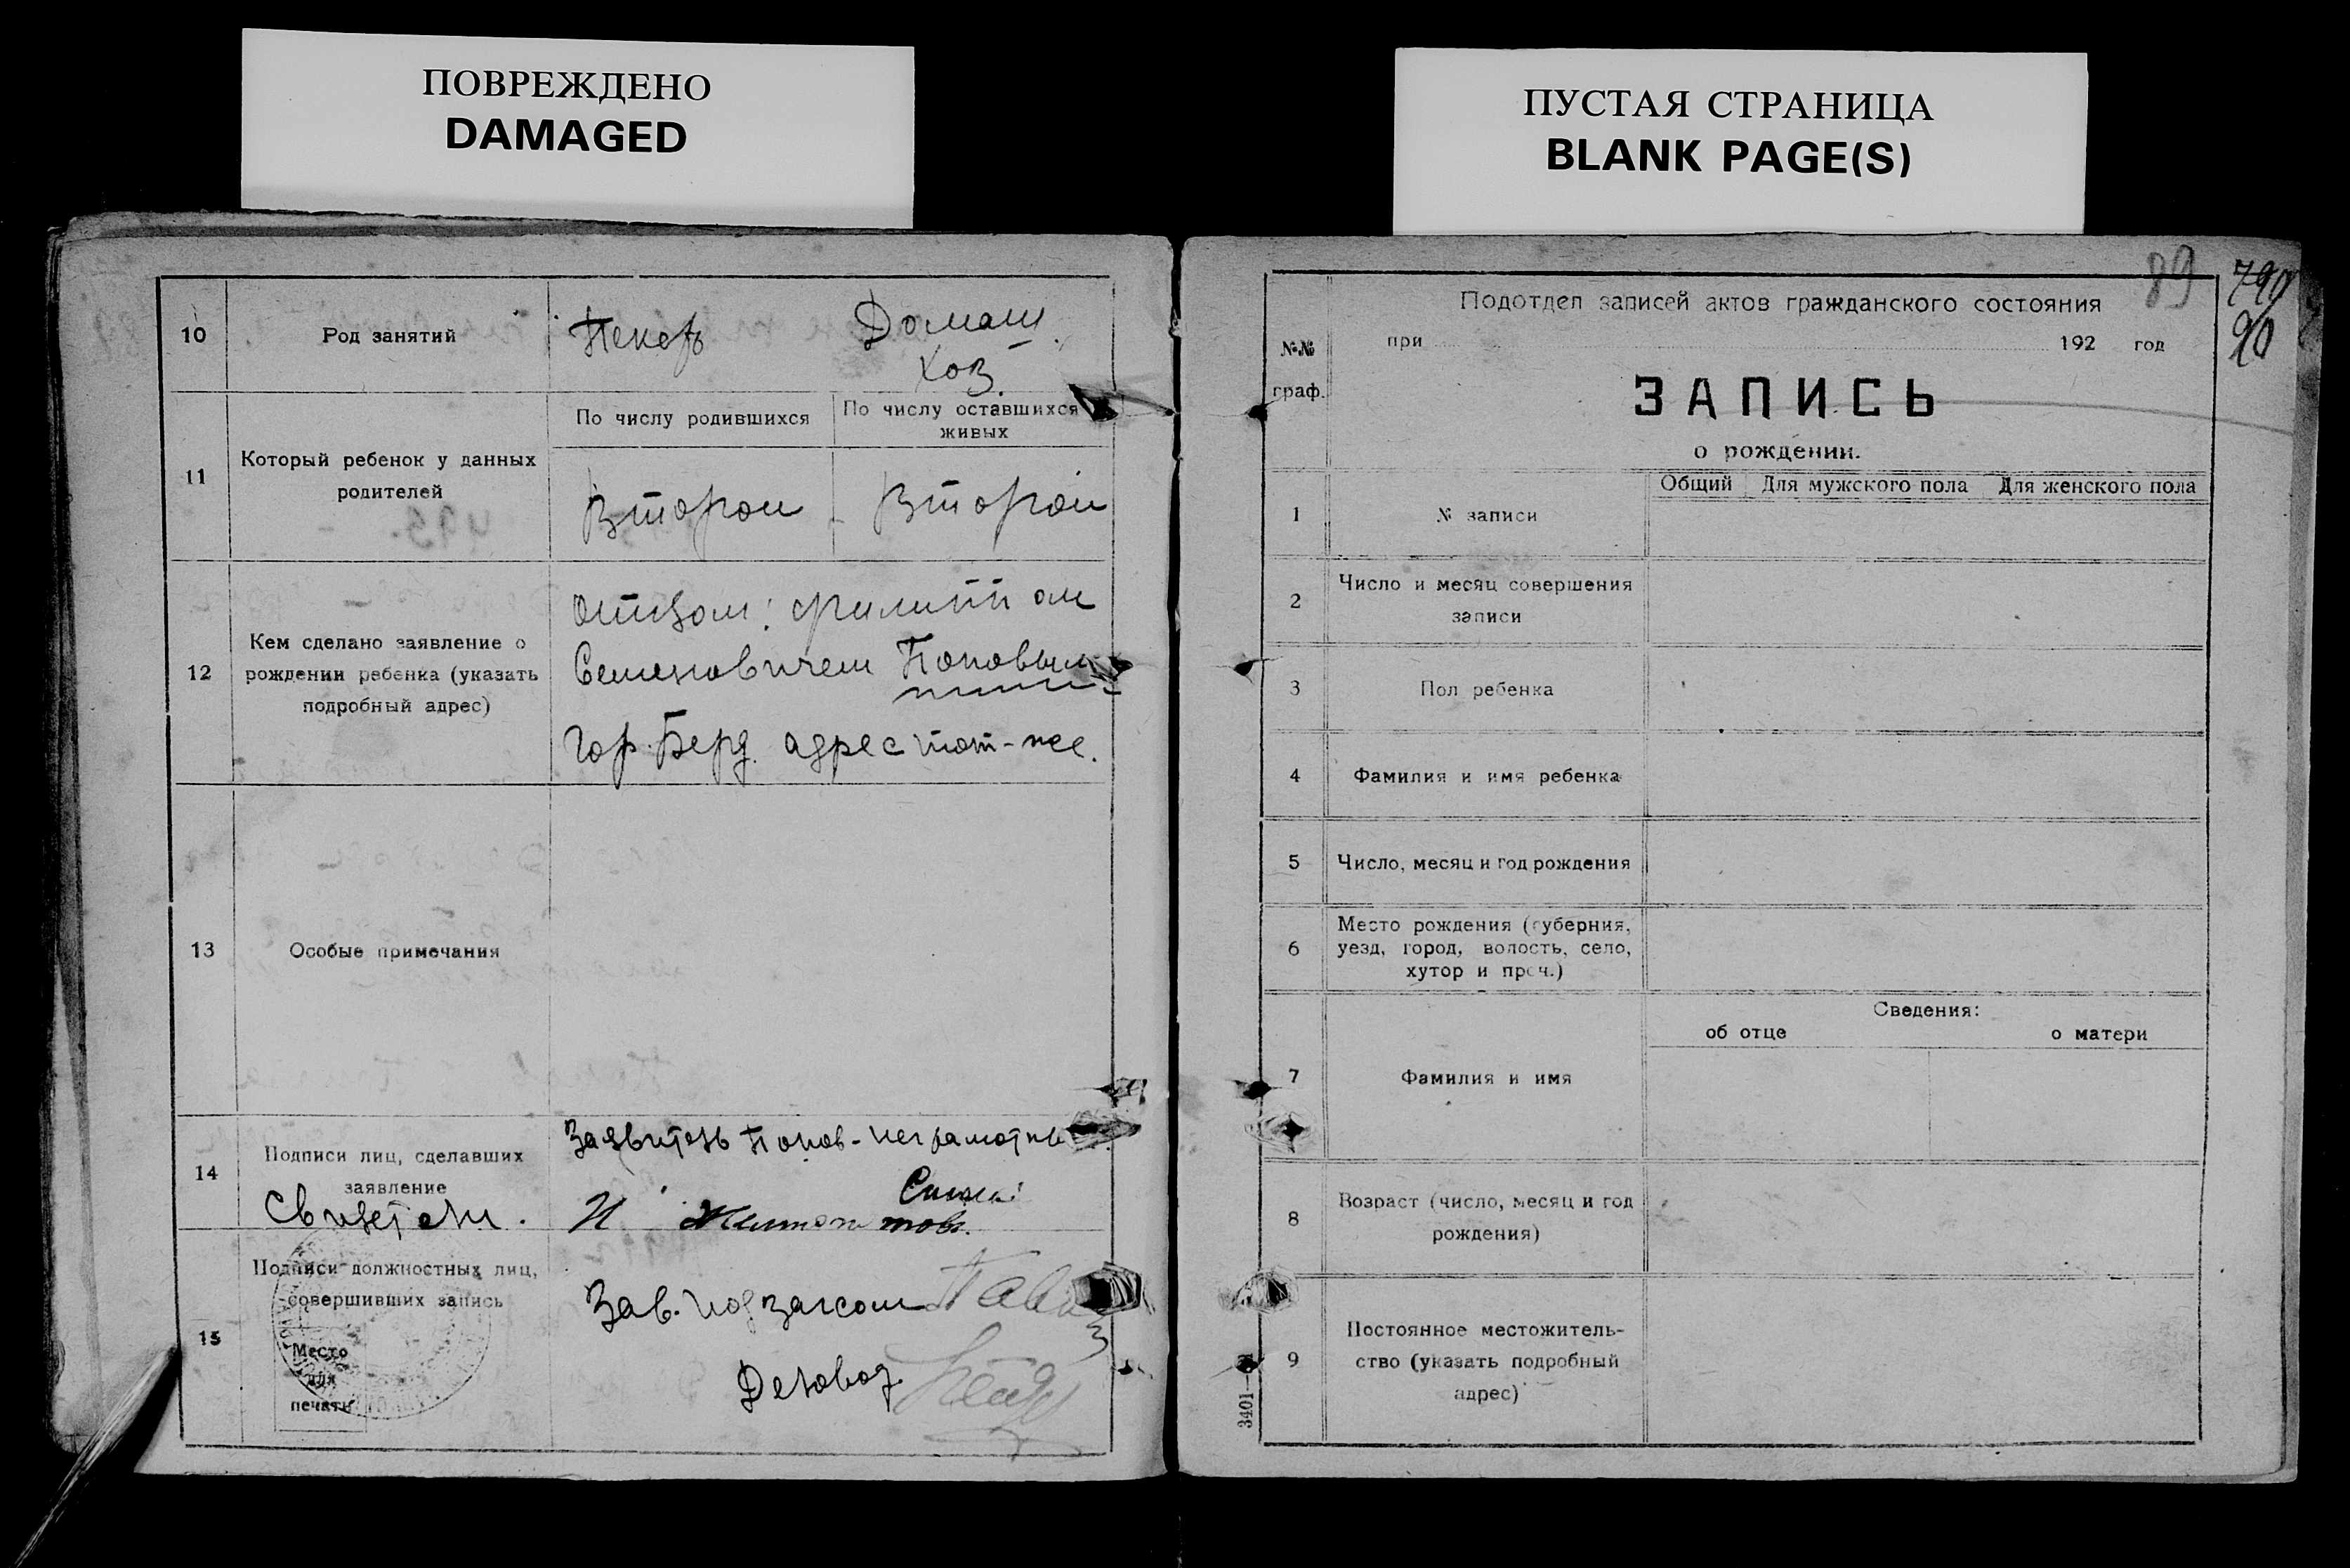 ПОВРЕЖДЕНО
DAMAGED
ПУСТАЯ СТРАНИЦА
BLANK PAGE(S)
10
Род занятий
Пекарь
Домаш.
Хоз.
11
Который ребенок у данных
родителей
По числу родившихся
По числу оставшихся
живых
Второй - Второй
12
Кем сделано заявление о
рождении ребенка (указать
подробный адрес)
Отцом: Филиппом
Семеновичем Поповым
Гор. Берд. адрес тот-же.
13
Особые примечания
14
Подписи лиц, сделавших
заявление
Свидетели.
Заявитель Попов - неграмотны
И
15
Подписи должностных лиц,
совершивших запись
Место
для
печати
Зав. подзагсом
Деловод
89
790
90
№№
граф.
Подотдел записей актов гражданского состояния
при 192 год
ЗАПИСЬ
о рождении.
Общий Для мужского пола Для женского пола
1
№ записи
2
Число и месяц совершения
записи
3
Пол ребенка
4
Фамилия и имя ребенка
5
Число, месяц и год рождения
6
Место рождения (губерния,
уезд, город, волость, село,
хутор и проч.)
7
Фамилия и имя
Сведения:
об отце о матери
8
Возраст (число, месяц и год
рождения)
9
Постоянное местожитель-
ство (указать подробный
адрес)
3401—